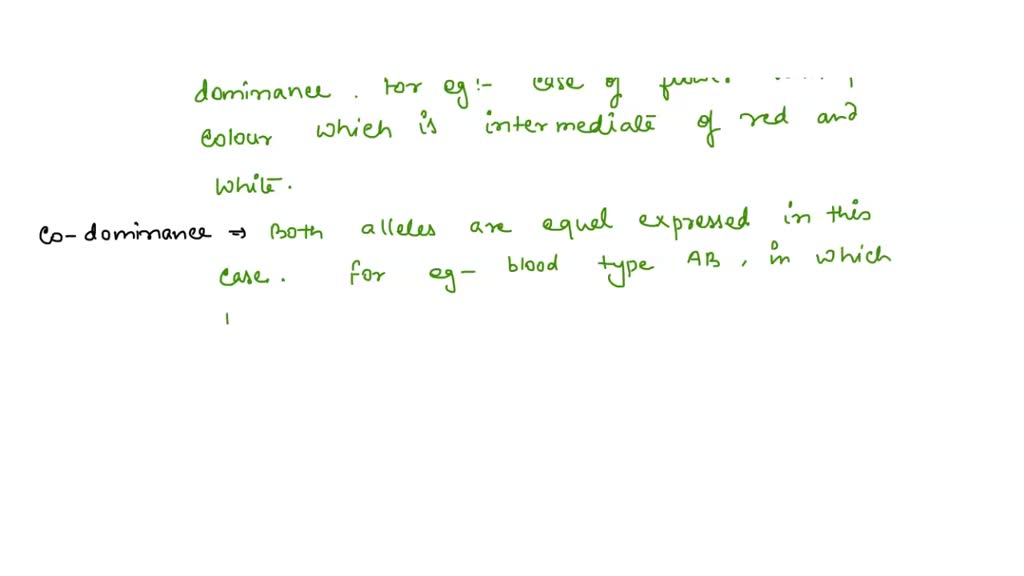 dominance. For eg:- case of
colour which is intermediate of red and
white.
Co-dominance ⇒ Both alleles are equal expressed in this
case. for eg- blood type AB, in which